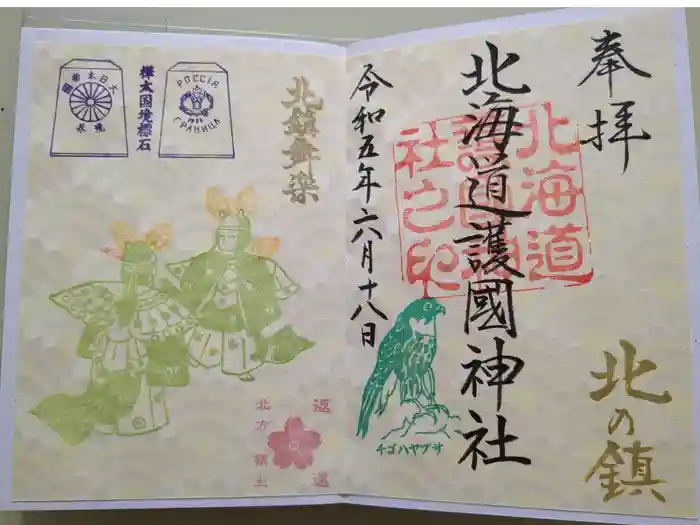 奉拝
北海道護國神社
北海道
護國神
社之印
令和五年六月十八日
北の鎮
チゴハヤブサ
北鎮鉾染
樺太国境標石
大日本
境界
РОССІЯ
ГРАНИЦА
1906
返還
北方領土